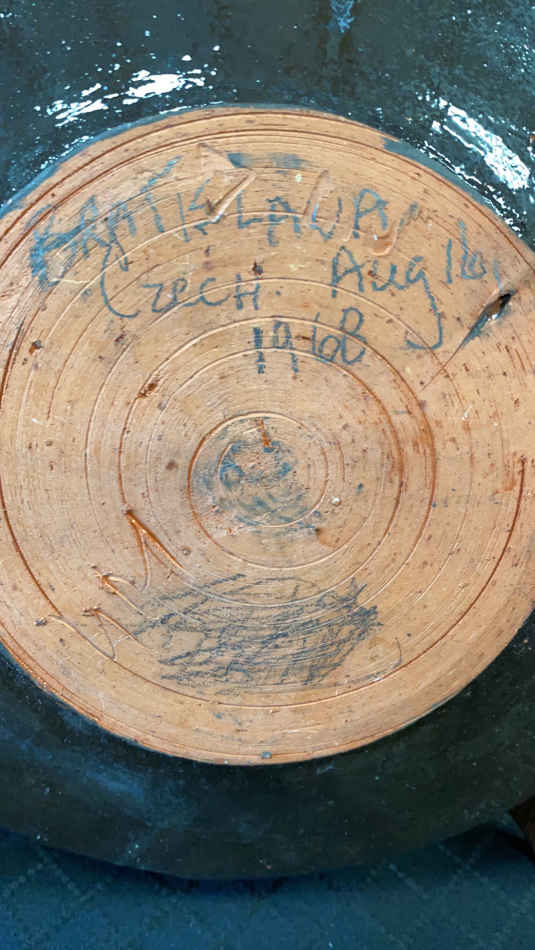 BRATISLAVA
Czech. Aug 16,
1968